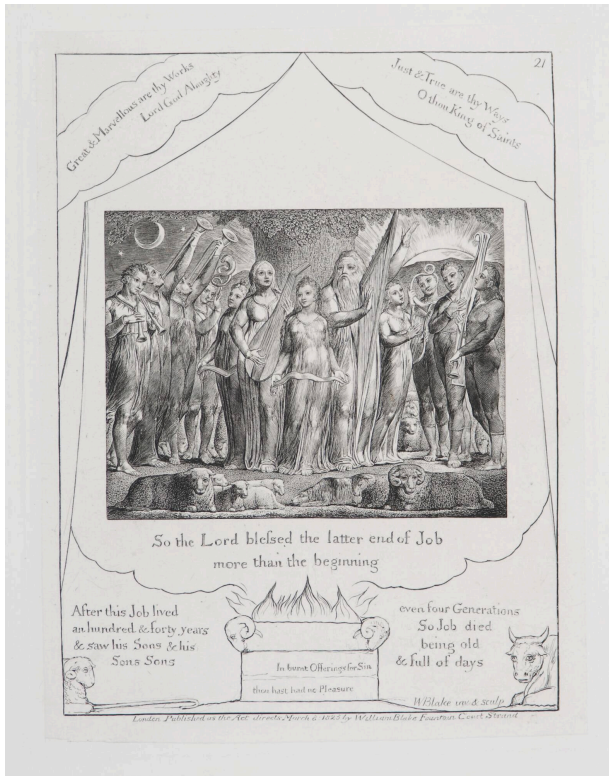 21
Great & Marvellous are thy Works
Lord God Almighty
Just & True are thy Ways
O thou King of Saints
So the Lord blessed the latter end of Job
more than the beginning
After this Job lived
an hundred & forty years
& saw his Sons & his
Sons Sons
even four Generations
So Job died
being old
& full of days
In burnt Offerings for Sin
thou hast had no Pleasure
WBlake inv & sculp
London Published as the Act directs March 8 1825 by William Blake Fountain Court Strand